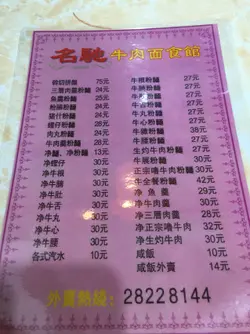 名馳牛肉面食館
特切拼麵 75元
三層肉羹粉麵 24元
魚羹粉麵 24元
粉腸粉麵 24元
豬什粉麵 24元
螺仔粉麵 24元
肉丸粉麵 24元
牛肉羹粉麵 28元
净麵、净粉麵 13元
净螺仔 30元
净牛根 30元
净牛腩 30元
净牛肚 30元
净牛舌 30元
净牛丸 30元
净牛心 30元
净牛腰 30元
各式汽水 10元
牛根粉麵 27元
牛腩粉麵 27元
牛肚粉麵 27元
牛舌粉麵 27元
牛丸粉麵 27元
牛心粉麵 27元
牛腰粉麵 27元
牛腱粉麵 27元
生灼牛肉粉麵 27元
牛展粉麵 30元
正宗嚕牛肉粉麵 30元
牛全餐粉麵 42元
净魚羹 29元
净牛肉羹 30元
净三層肉羹 30元
净正宗嚕牛肉 32元
净生灼牛肉 30元
咸飯 10元
咸飯外賣 14元
外賣熱綫：28228144